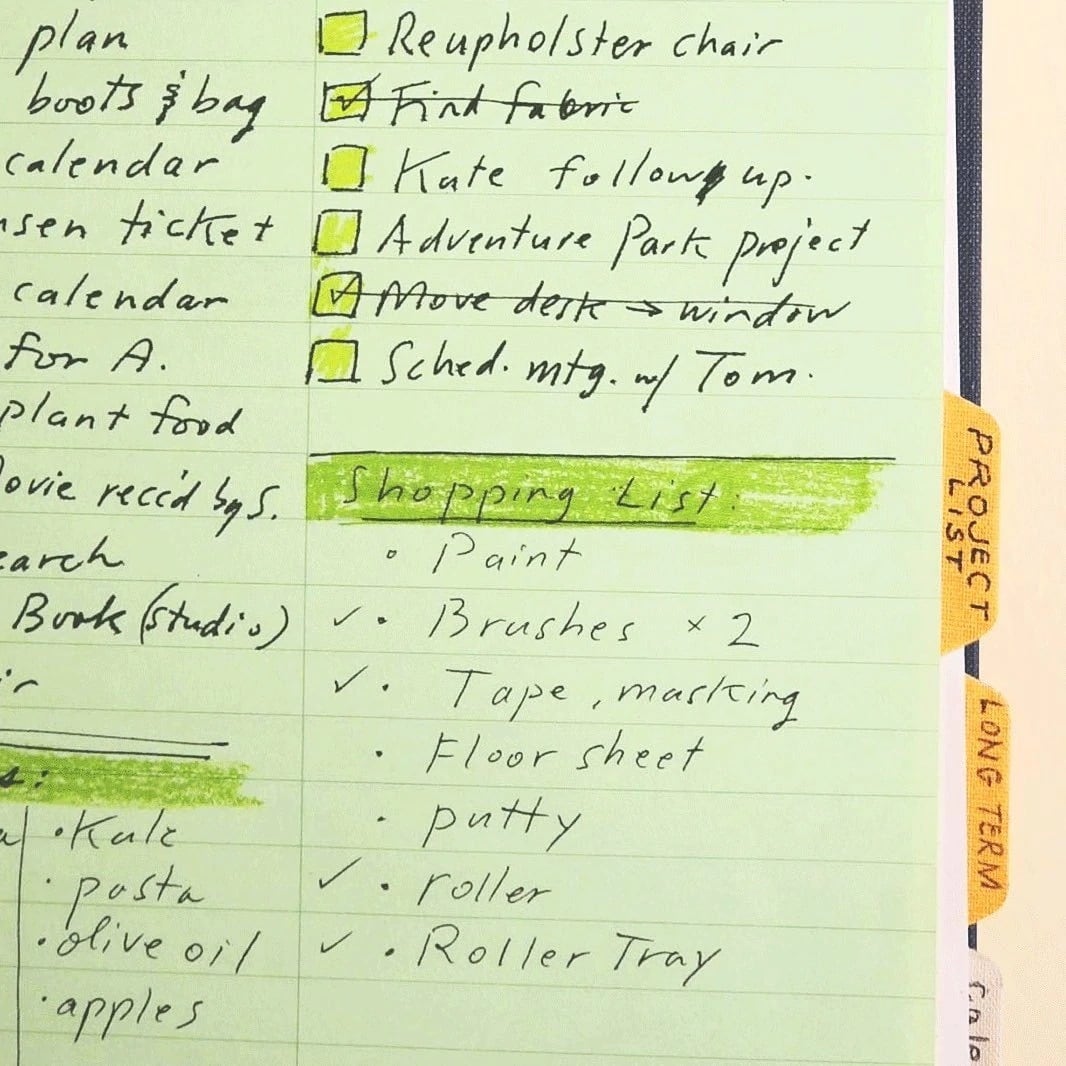 plan
boots & bag
calendar
ticket
calendar
for A.
plant food
recc'd by S.
Book (studio)
• Kale
• pasta
• olive oil
• apples
Reupholster chair
✓ Find fabric
Kate follow up.
Adventure Park project
✓ Move desk → window
Sched. mtg. w/ Tom.
Shopping List:
• Paint
✓ • Brushes × 2
✓ • Tape, masking
• Floor sheet
• putty
✓ • roller
✓ • Roller Tray
PROJECT
LIST
LONG TERM